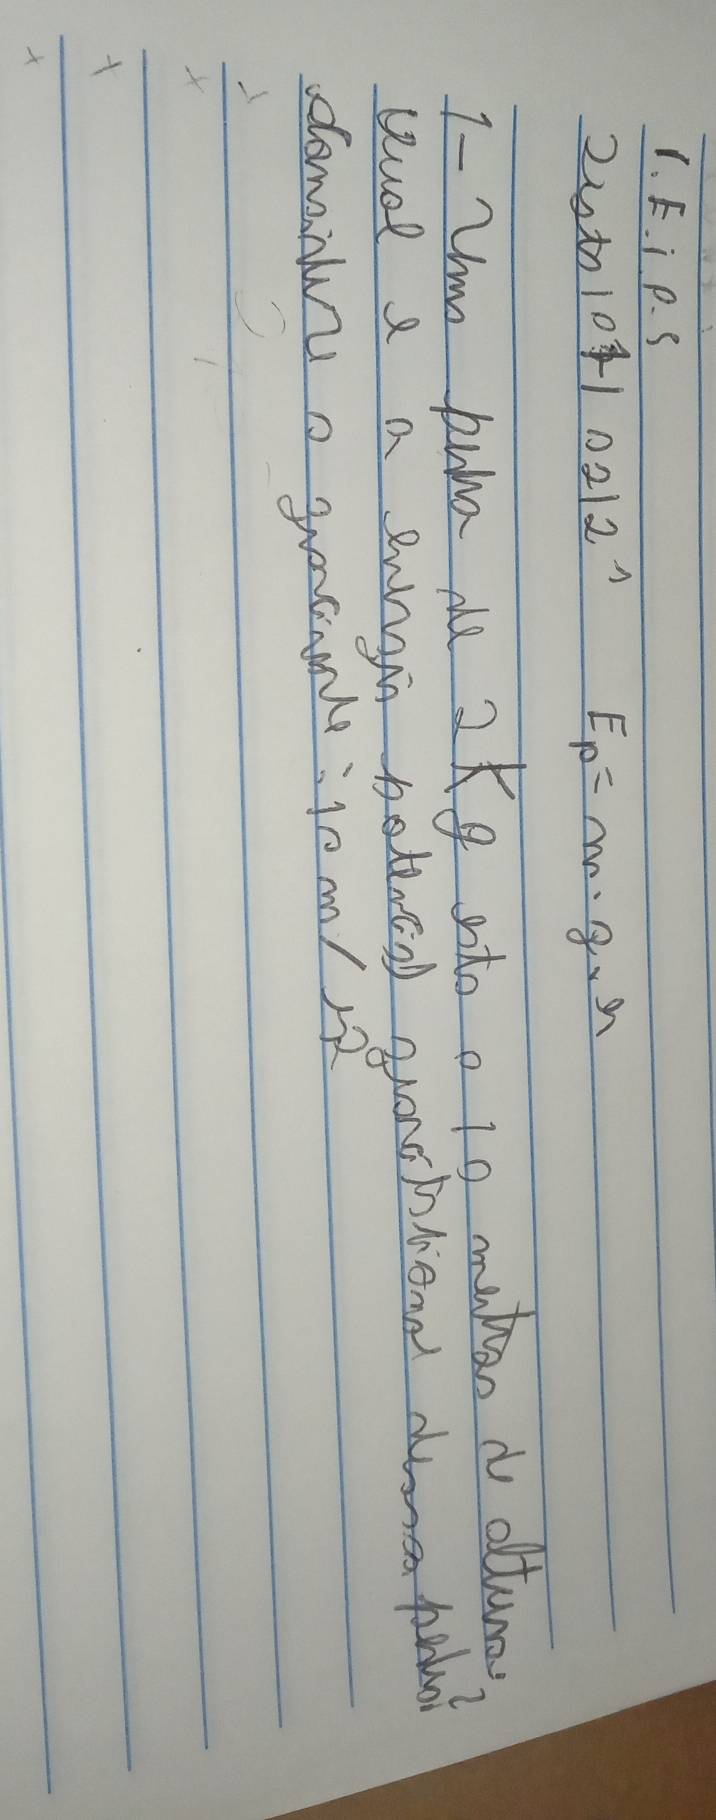 1. E. i P. S
Testo 1 07/02/2ª Ep = m . g . h
1 - Uma pedra de 2 Kg esta a 10 metros de altura.
Qual e a energia potencial gravitacional dessa pedra?
Considere a gravidade: 10 m/s²